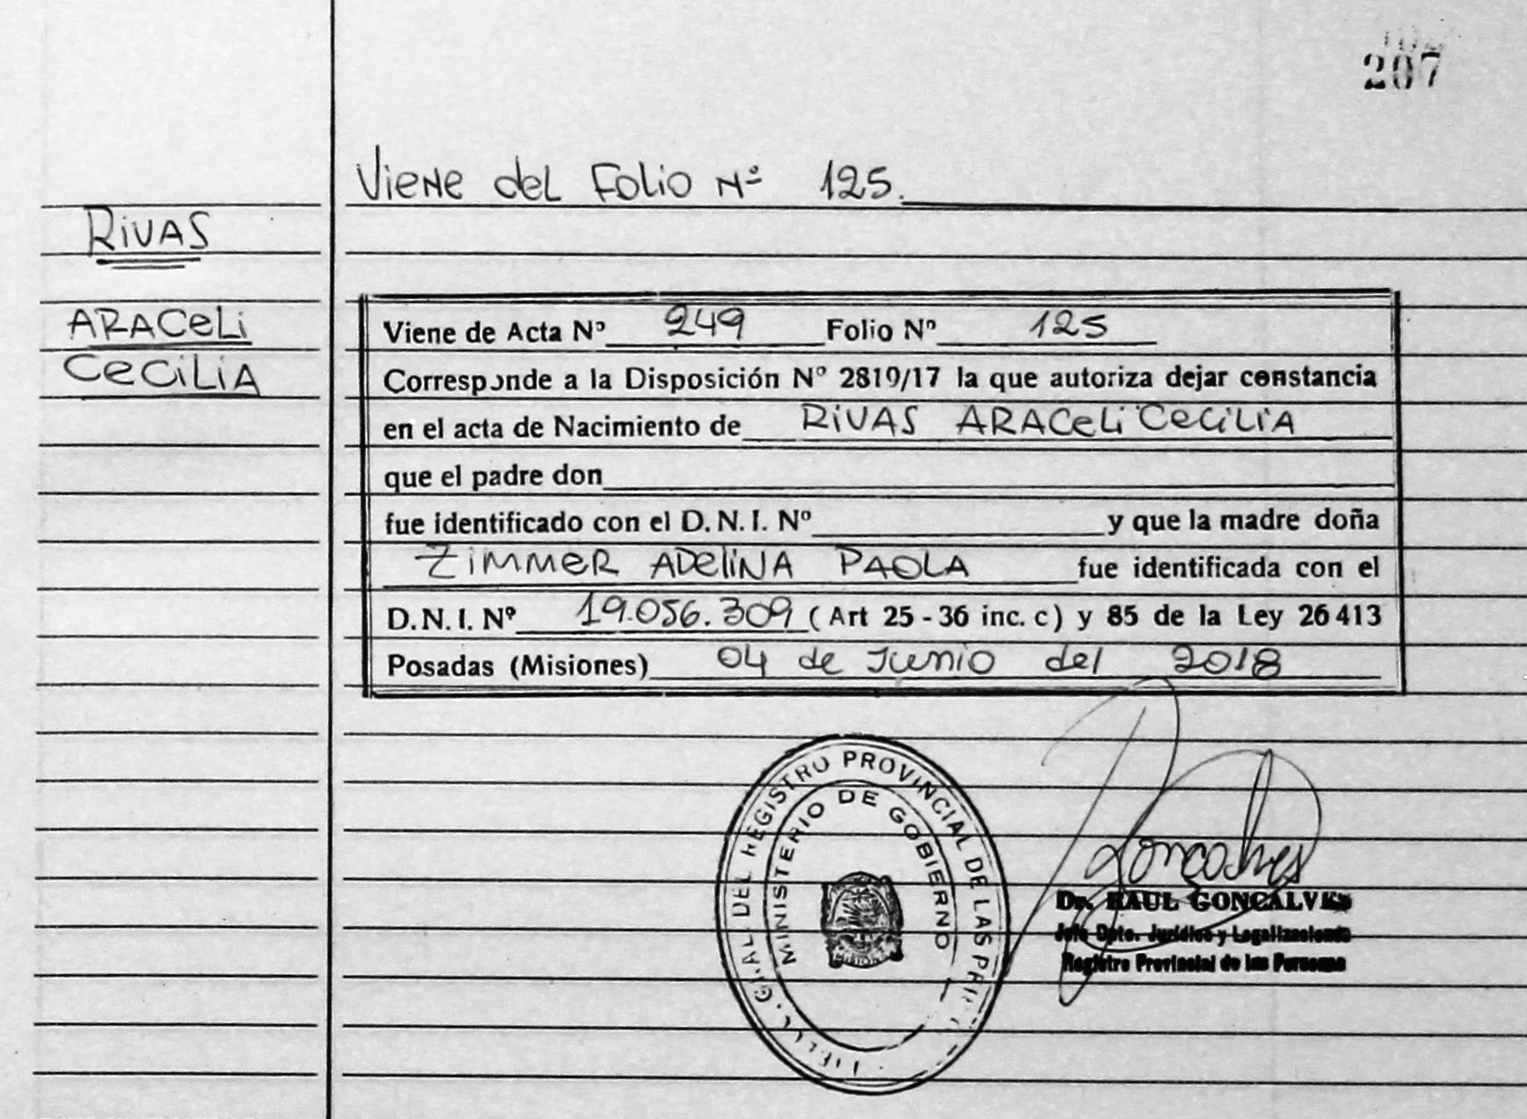 207
Viene del Folio Nº 125.
RIVAS
ARACELI
CECILIA
Viene de Acta Nº 249 Folio Nº 125
Corresponde a la Disposición Nº 2819/17 la que autoriza dejar constancia
en el acta de Nacimiento de RIVAS ARACELI CECILIA
que el padre don
fue identificado con el D.N.I. Nº y que la madre doña
ZIMMER ADELINA PAOLA fue identificada con el
D.N.I. Nº 19.056.309 (Art 25-36 inc. c) y 85 de la Ley 26413
Posadas (Misiones) 04 de Junio del 2018
GRAL. DEL REGISTRO PROVINCIAL DE LAS
MINISTERIO DE GOBIERNO
MISIONES
Goncalves
Dr. RAUL GONCALVES
Jefe Dpto. Jurídico y Legalizaciones
Registro Provincial de las Personas